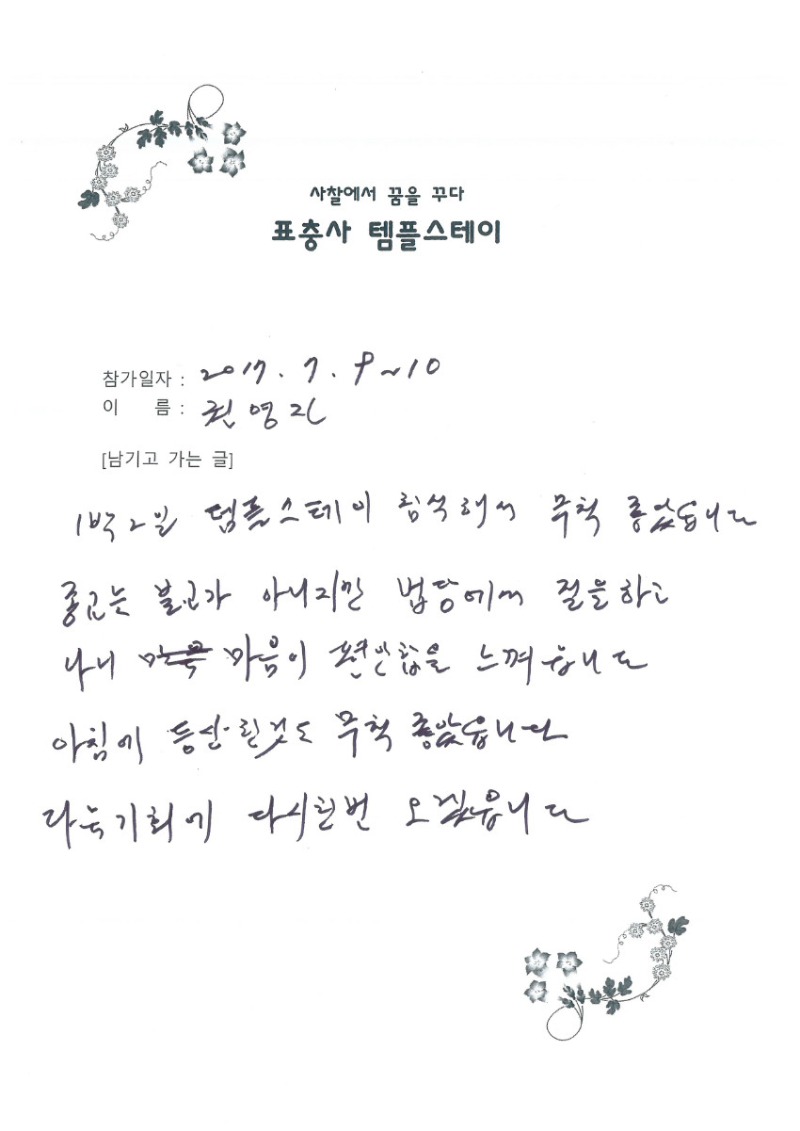 사찰에서 꿈을 꾸다
표충사 템플스테이
참가일자 : 2017. 7. 9~10
이 름 : 권영진
[남기고 가는 글]
1박2일 템플스테이 참석해서 무척 좋았습니다
종교는 불교가 아니지만 법당에서 절을하고
나니 마음이 편안함을 느껴읍니다
아침에 등산 한것도 무척 좋았읍니다
다음기회에 다시한번 오겠읍니다